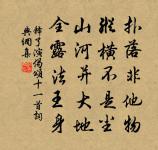 扑落非他物
縱橫不是尘
山河并大地
全露法王身
釋了演偈頌十一首詞
典網集